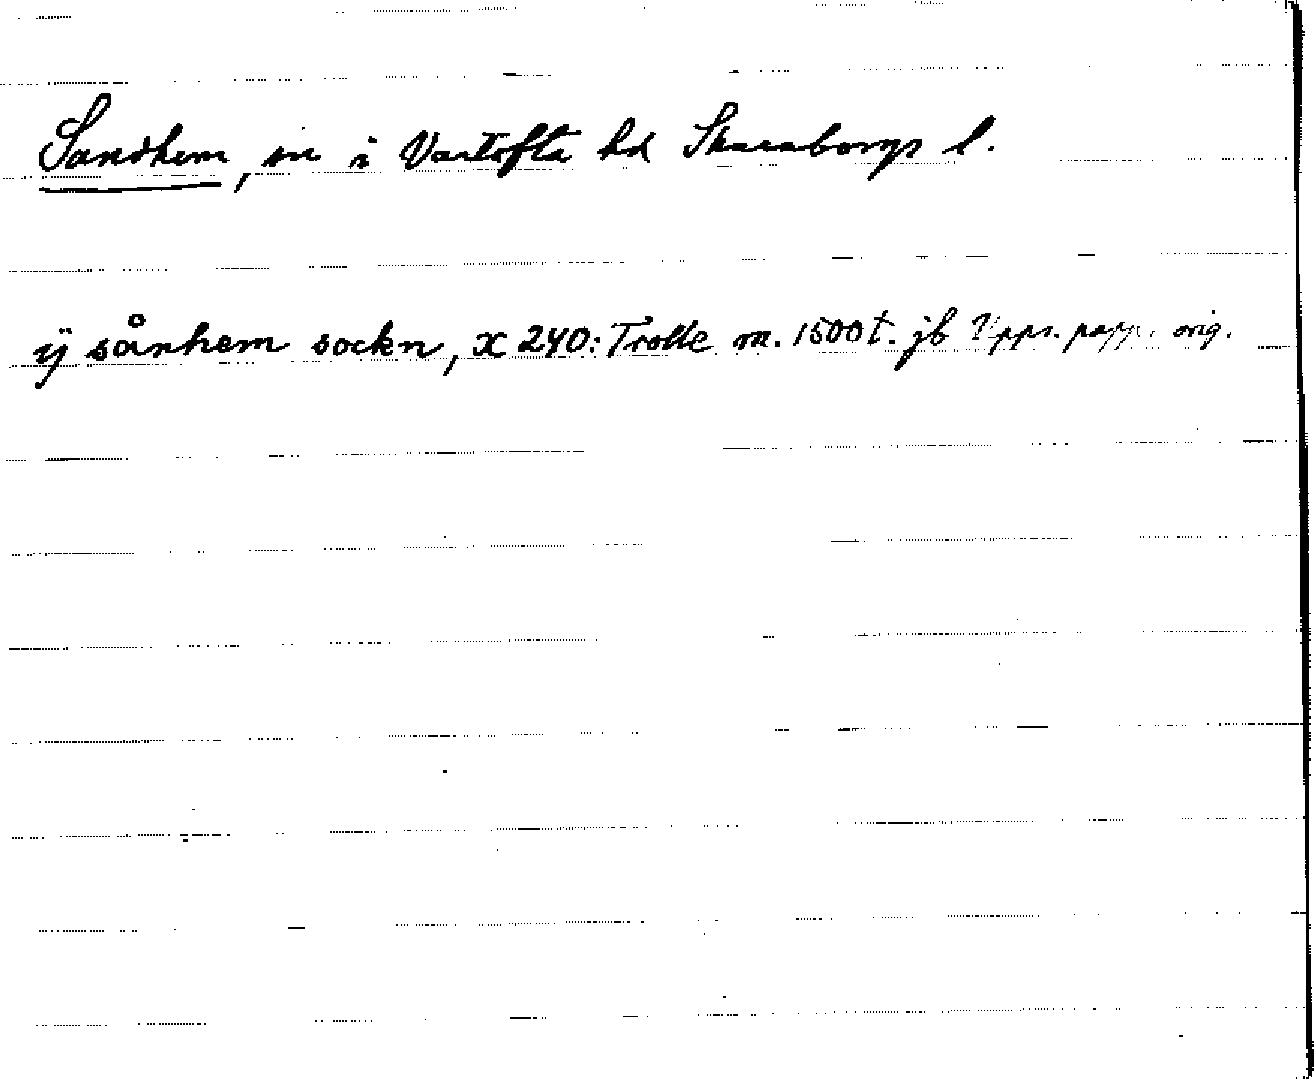 Sandhem, sn i Vartofta hd Skaraborgs l.
ÿ sånhem sockn, x 240: Trolle m. 1500t. jb Upps. papp. orig.